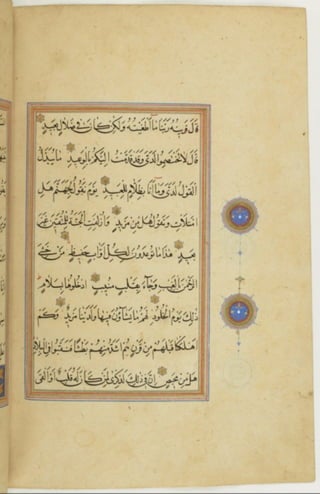 قَالَ قَرِينُهُ رَبَّنَا مَا أَطْغَيْتُهُ وَلَكِنْ كَانَ فِي ضَلَالٍ بَعِيدٍ
قَالَ لَا تَخْتَصِمُوا لَدَيَّ وَقَدْ قَدَّمْتُ إِلَيْكُمْ بِالْوَعِيدِ مَا يُبَدَّلُ
الْقَوْلُ لَدَيَّ وَمَا أَنَا بِظَلَّامٍ لِلْعَبِيدِ يَوْمَ نَقُولُ لِجَهَنَّمَ هَلِ
امْتَلَأْتِ وَتَقُولُ هَلْ مِنْ مَزِيدٍ وَأُزْلِفَتِ الْجَنَّةُ لِلْمُتَّقِينَ غَيْرَ
بَعِيدٍ هَذَا مَا تُوعَدُونَ لِكُلِّ أَوَّابٍ حَفِيظٍ مَنْ خَشِيَ
الرَّحْمَنَ بِالْغَيْبِ وَجَاءَ بِقَلْبٍ مُنِيبٍ ادْخُلُوهَا بِسَلَامٍ
ذَلِكَ يَوْمُ الْخُلُودِ لَهُمْ مَا يَشَاؤُنَ فِيهَا وَلَدَيْنَا مَزِيدٌ وَكَمْ
أَهْلَكْنَا قَبْلَهُمْ مِنْ قَرْنٍ هُمْ أَشَدُّ مِنْهُمْ بَطْشًا فَنَقَّبُوا فِي الْبِلَادِ
هَلْ مِنْ مَحِيصٍ إِنَّ فِي ذَلِكَ لَذِكْرَى لِمَنْ كَانَ لَهُ قَلْبٌ أَوْ أَلْقَى